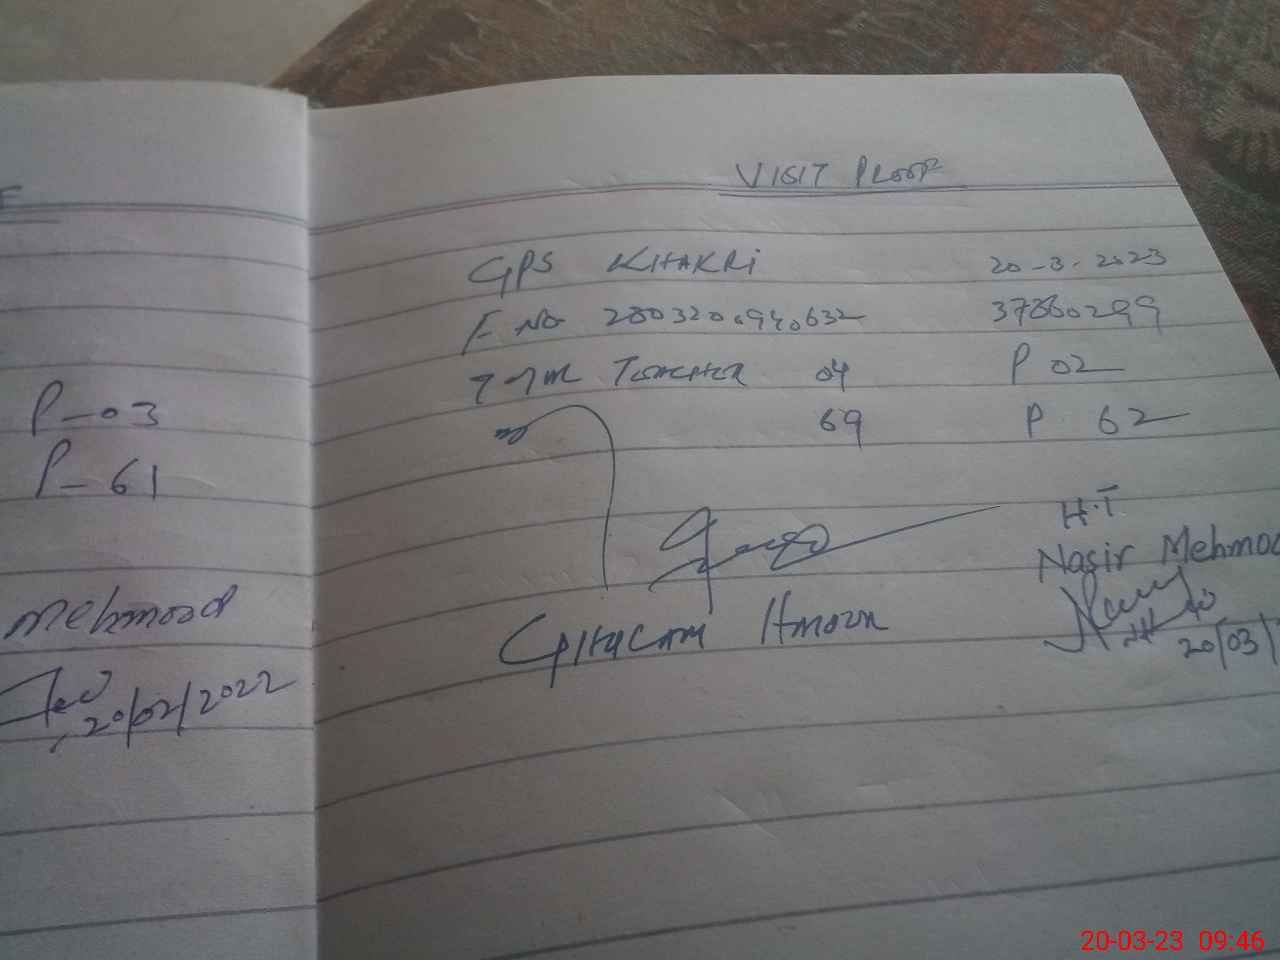 P-03
P-61
Mehmood
20/02/2022
VISIT PROOF
GPS KHAKRi 20-3-2023
F NO 2803200940632 37860299
TEACHER 04 P 02
69 P 62
H.T
Nasir Mehmoo
20/03/
20-03-23 09:46